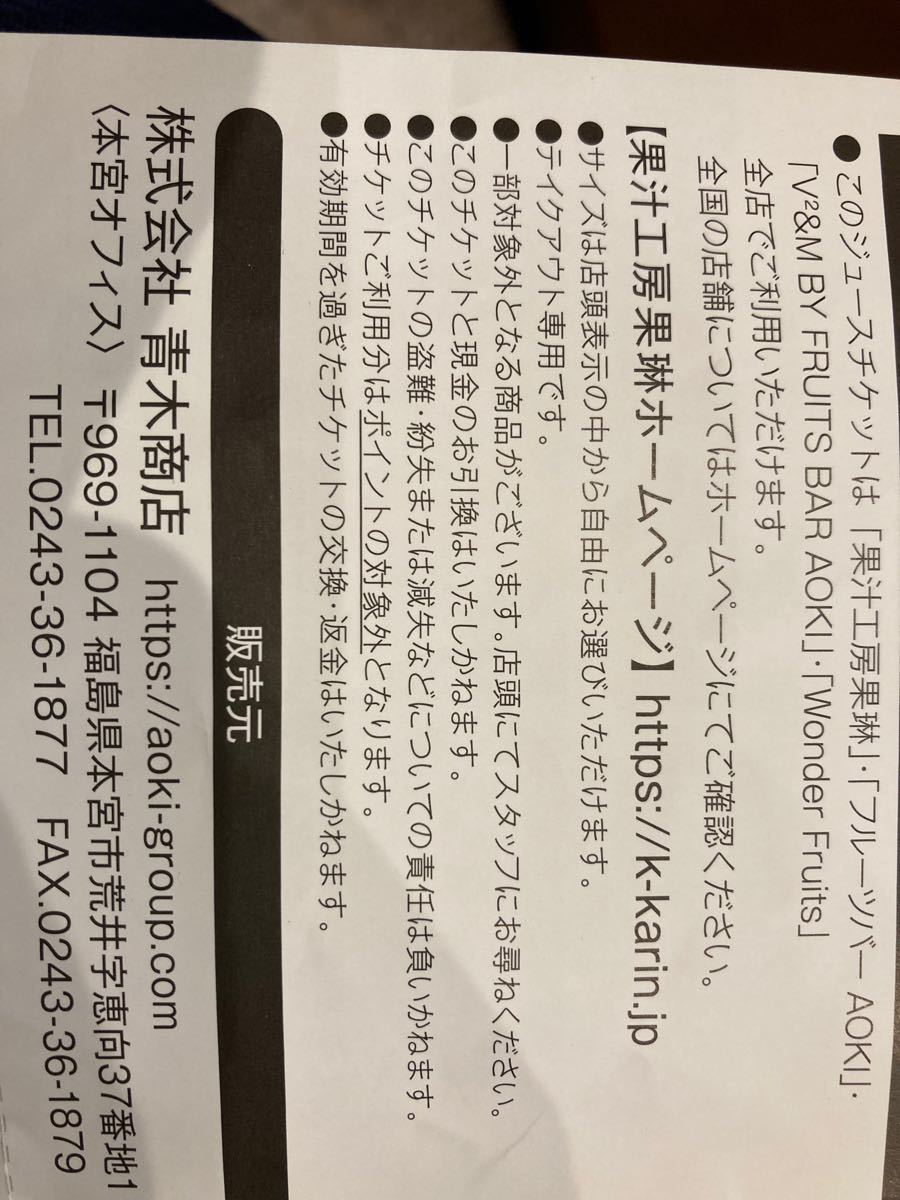 ●このジュースチケットは「果汁工房果琳」・「フルーツバー AOKI」・
「V²&M BY FRUITS BAR AOKI」・「Wonder Fruits」
全店でご利用いただけます。
全国の店舗についてはホームページにてご確認ください。
【果汁工房果琳ホームページ】https://k-karin.jp
●サイズは店頭表示の中から自由にお選びいただけます。
●テイクアウト専用です。
●一部対象外となる商品がございます。店頭にてスタッフにお尋ねください。
●このチケットと現金のお引換はいたしかねます。
●このチケットの盗難・紛失または減失などについての責任は負いかねます。
●チケットご利用分はポイントの対象外となります。
●有効期間を過ぎたチケットの交換・返金はいたしかねます。
販売元
株式会社 青木商店 https://aoki-group.com
〈本宮オフィス〉〒969-1104 福島県本宮市荒井字恵向37番地1
TEL.0243-36-1877 FAX.0243-36-1879